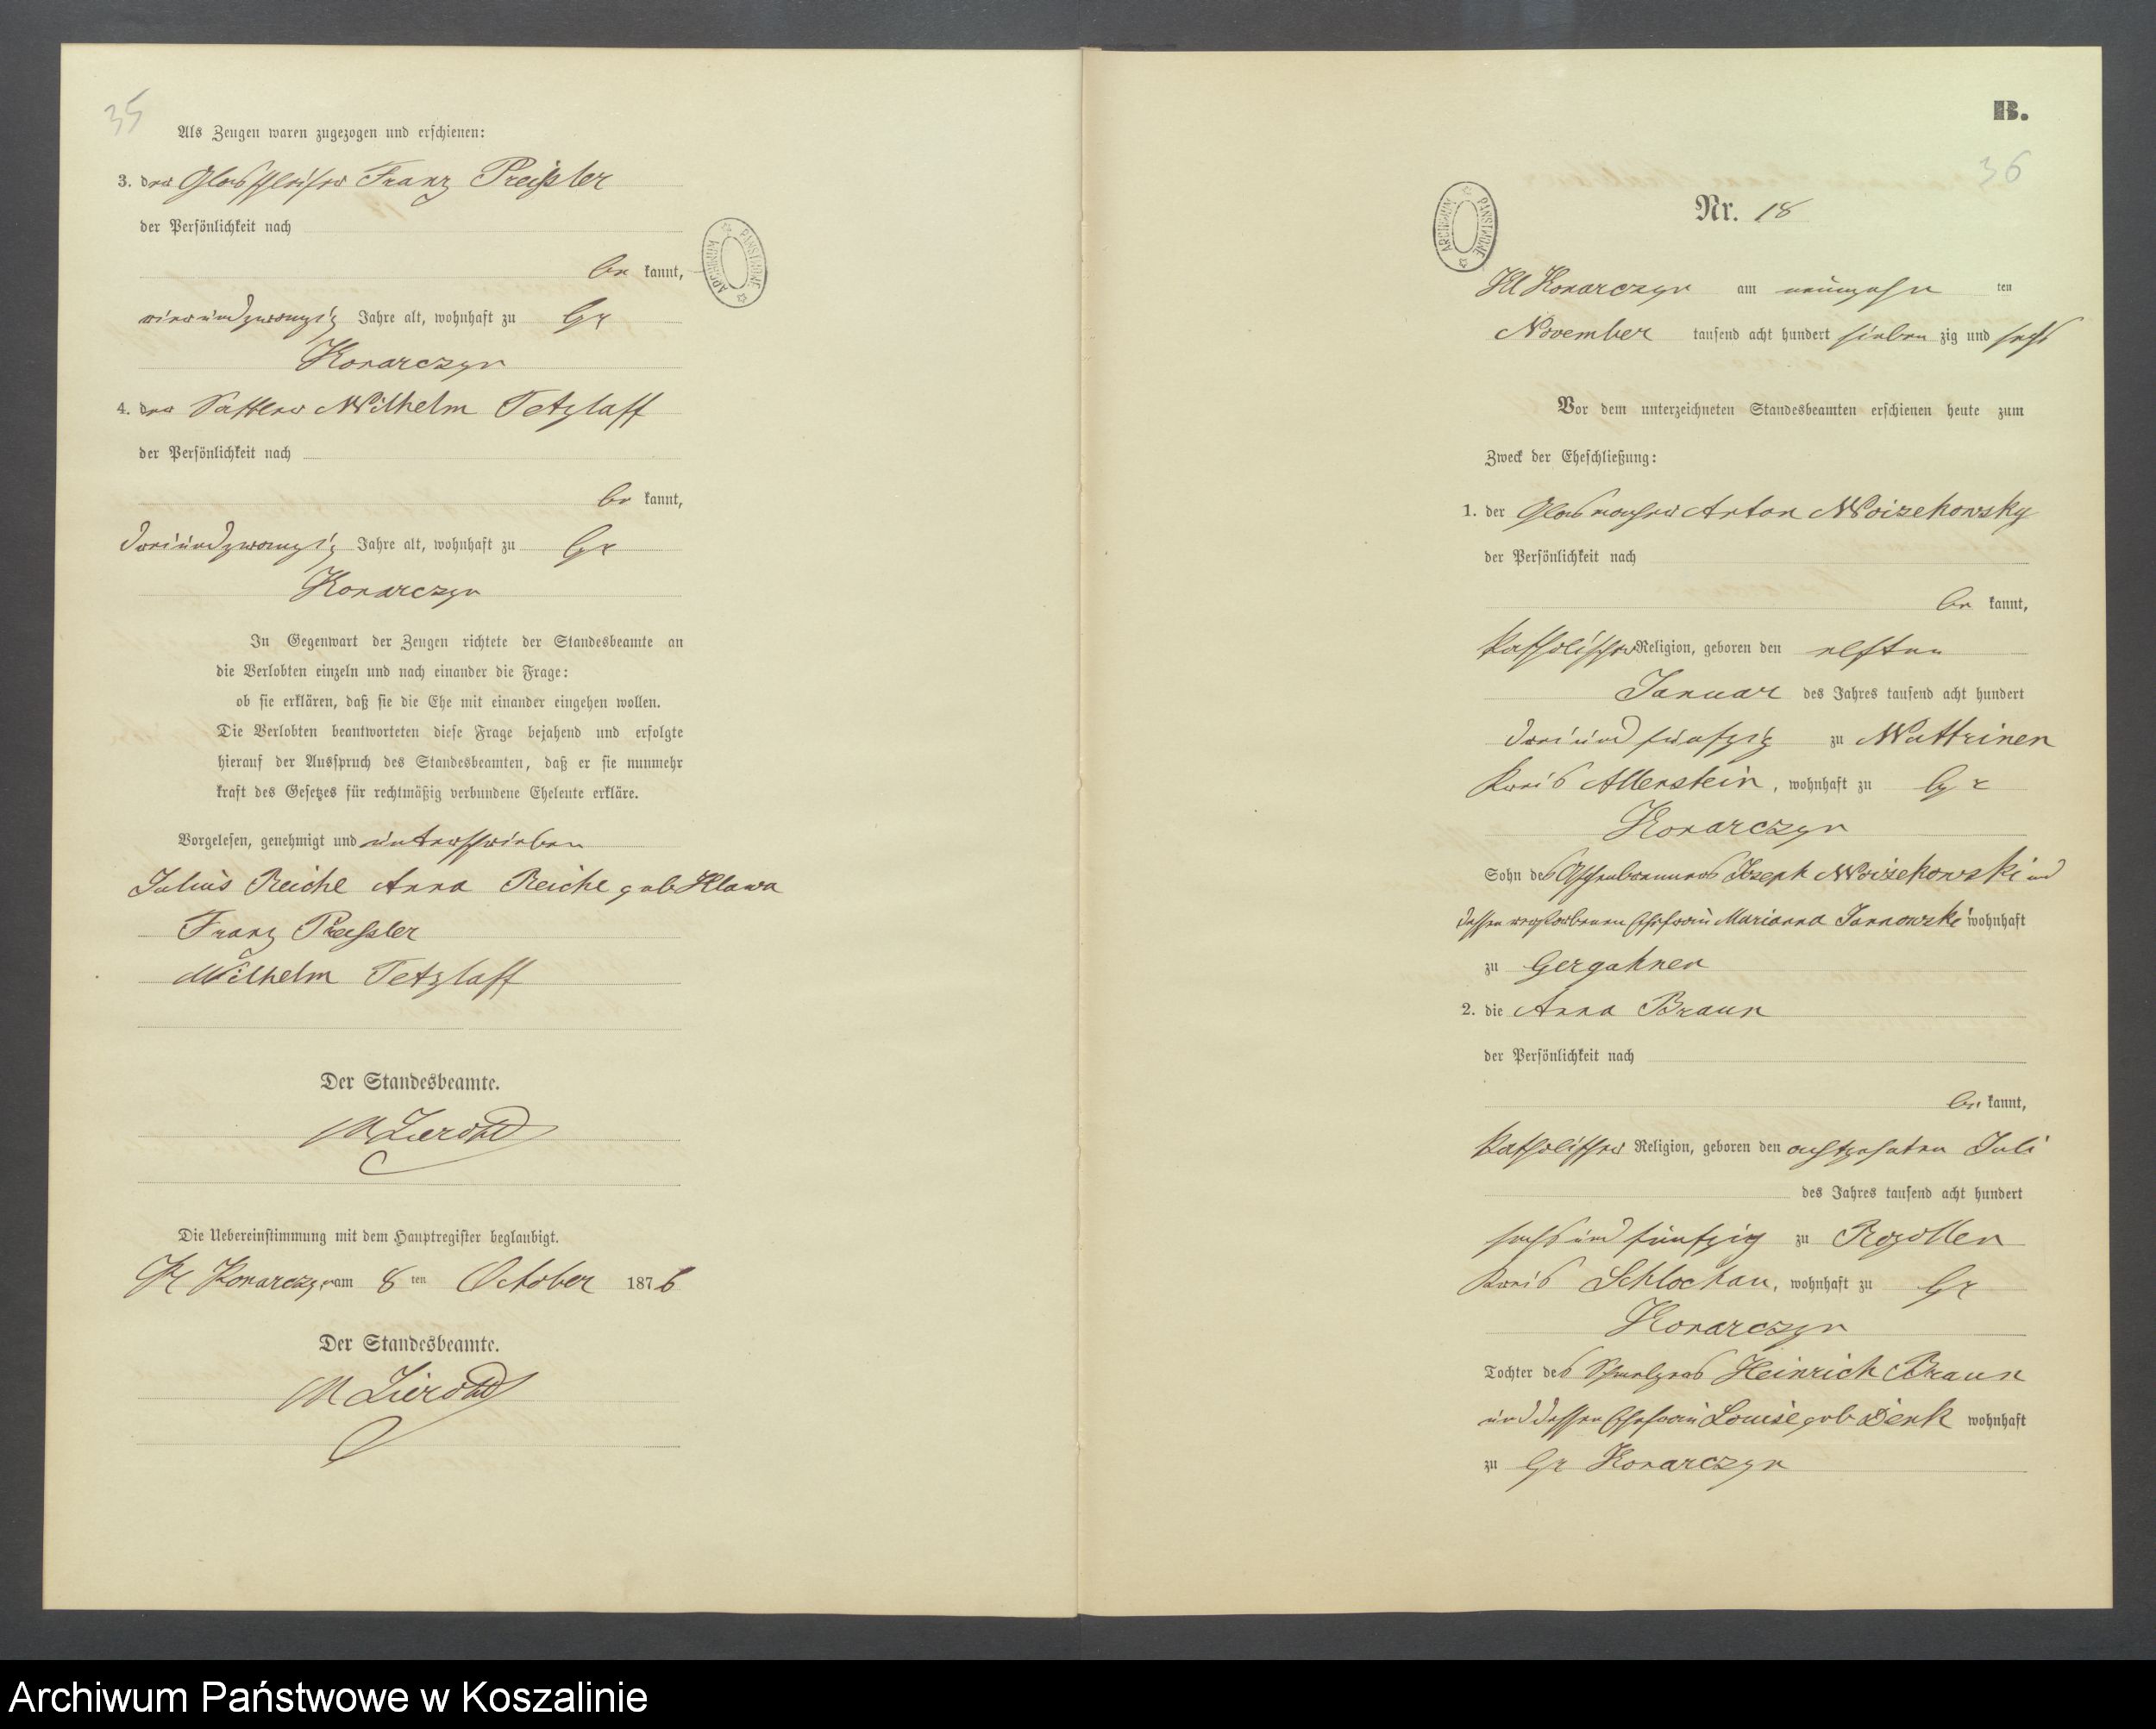 35
Als Zeugen waren zugezogen und erschienen:
3. der Glasschleifer Franz Preißler
der Persönlichkeit nach
be kannt,
vierundzwanzig Jahre alt, wohnhaft zu Gr
Konarczyn
4. der Sattler Wilhelm Tetzlaff
der Persönlichkeit nach
be kannt,
dreiundzwanzig Jahre alt, wohnhaft zu Gr
Konarczyn
In Gegenwart der Zeugen richtete der Standesbeamte an
die Verlobten einzeln und nach einander die Frage:
ob sie erklären, daß sie die Ehe mit einander eingehen wollen.
Die Verlobten beantworteten diese Frage bejahend und erfolgte
hierauf der Ausspruch des Standesbeamten, daß er sie nunmehr
kraft des Gesetzes für rechtmäßig verbundene Eheleute erkläre.
Vorgelesen, genehmigt und unterschrieben
Julius Reiche Anna Reiche geb Klawa
Franz Preißler
Wilhelm Tetzlaff
Der Standesbeamte.
Die Uebereinstimmung mit dem Hauptregister beglaubigt.
Kl Konarczyn am 8 ten October 1876
Der Standesbeamte.
ARCHIWUM PAŃSTWOWE
B.
36
ARCHIWUM PAŃSTWOWE
Nr. 18
Kl Konarczyn am neunzehn ten
November tausend acht hundert sieben zig und sechs
Vor dem unterzeichneten Standesbeamten erschienen heute zum
Zweck der Eheschließung:
1. der Glasmacher Anton Woizekowsky
der Persönlichkeit nach
be kannt,
katholischer Religion, geboren den elften
Januar des Jahres tausend acht hundert
dreiundfünfzig zu Wuttrinen
Kreis Allenstein, wohnhaft zu Gr
Konarczyn
Sohn des Aschenbrenners Joseph Woizekowski und
dessen verstorbenen Ehefrau Marianna Jannowski wohnhaft
zu Gergahnen
2. die Anna Braun
der Persönlichkeit nach
be kannt,
katholischer Religion, geboren den achtzehnten Juli
des Jahres tausend acht hundert
sechs und fünfzig zu Pagdllen
Kreis Schlochau, wohnhaft zu Gr
Konarczyn
Tochter des Schmelzers Heinrich Braun
und dessen Ehefrau Louise geb Denk wohnhaft
zu Gr Konarczyn
Archiwum Państwowe w Koszalinie